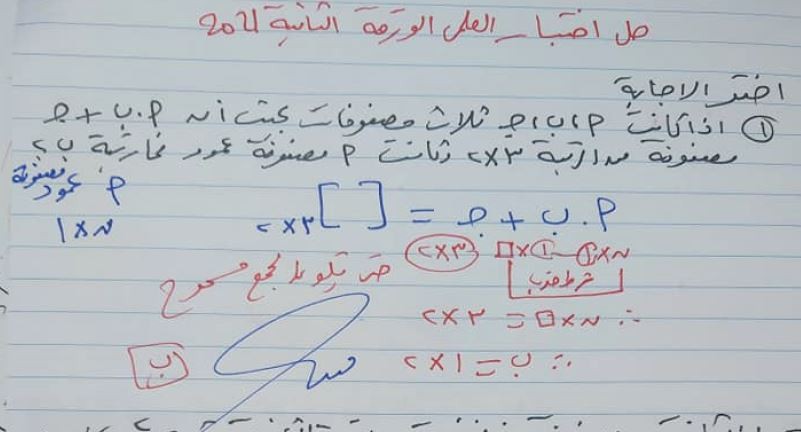 حل اختبار العلمى الورقة الثانية 2021
اختر الاجابة
① اذا كانت P، ب، جـ ثلاث مصفوفات بحيث أن P.ب + جـ
مصفوفة من الرتبة ٣×٢ وكانت P مصفوفة عمود فما رتبة ب؟
P مصفوفة عمود
ن×١
P.ب + جـ = [ ] ٣×٢
ن×① ①×□ ٣×٢ حتى يكون الجمع مسموح
شرط ضرب
∴ ن×□ = ٣×٢
∴ ب = ١×٢
ب